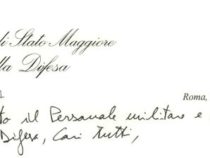 di Stato Maggiore
lla Difesa
Roma,
to il Personale militare e
Difesa, Cari tutti,